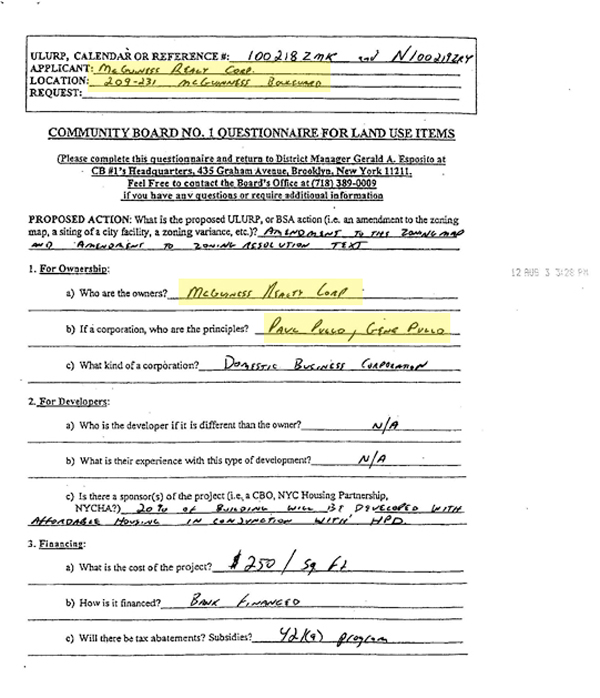 ULURP, CALENDAR OR REFERENCE #: 100218 ZMK and N100219ZRY
APPLICANT: McGuiness Realty Corp.
LOCATION: 209-231 McGuinness Boulevard
REQUEST:
COMMUNITY BOARD NO. 1 QUESTIONNAIRE FOR LAND USE ITEMS
(Please complete this questionnaire and return to District Manager Gerald A. Esposito at
CB #1's Headquarters, 435 Graham Avenue, Brooklyn, New York 11211.
Feel Free to contact the Board's Office at (718) 389-0009
if you have any questions or require additional information
PROPOSED ACTION: What is the proposed ULURP, or BSA action (i.e. an amendment to the zoning
map, a siting of a city facility, a zoning variance, etc.)? AMENDMENT TO THE ZONING MAP
AND AMENDMENT TO ZONING RESOLUTION TEXT
1. For Ownership:
12 AUG 3 3:28 PM
a) Who are the owners? McGuiness Realty Corp
b) If a corporation, who are the principles? Paul Pullo, Gene Pullo
c) What kind of a corporation? Domestic Business Corporation
2. For Developers:
a) Who is the developer if it is different than the owner? N/A
b) What is their experience with this type of development? N/A
c) Is there a sponsor(s) of the project (i.e, a CBO, NYC Housing Partnership,
NYCHA?) 20% OF BUILDING WILL BE DEVELOPED WITH
AFFORDABLE HOUSING IN CONJUNCTION WITH HPD.
3. Financing:
a) What is the cost of the project? $250 / Sq Ft
b) How is it financed? BANK FINANCED
c) Will there be tax abatements? Subsidies? 421(a) program